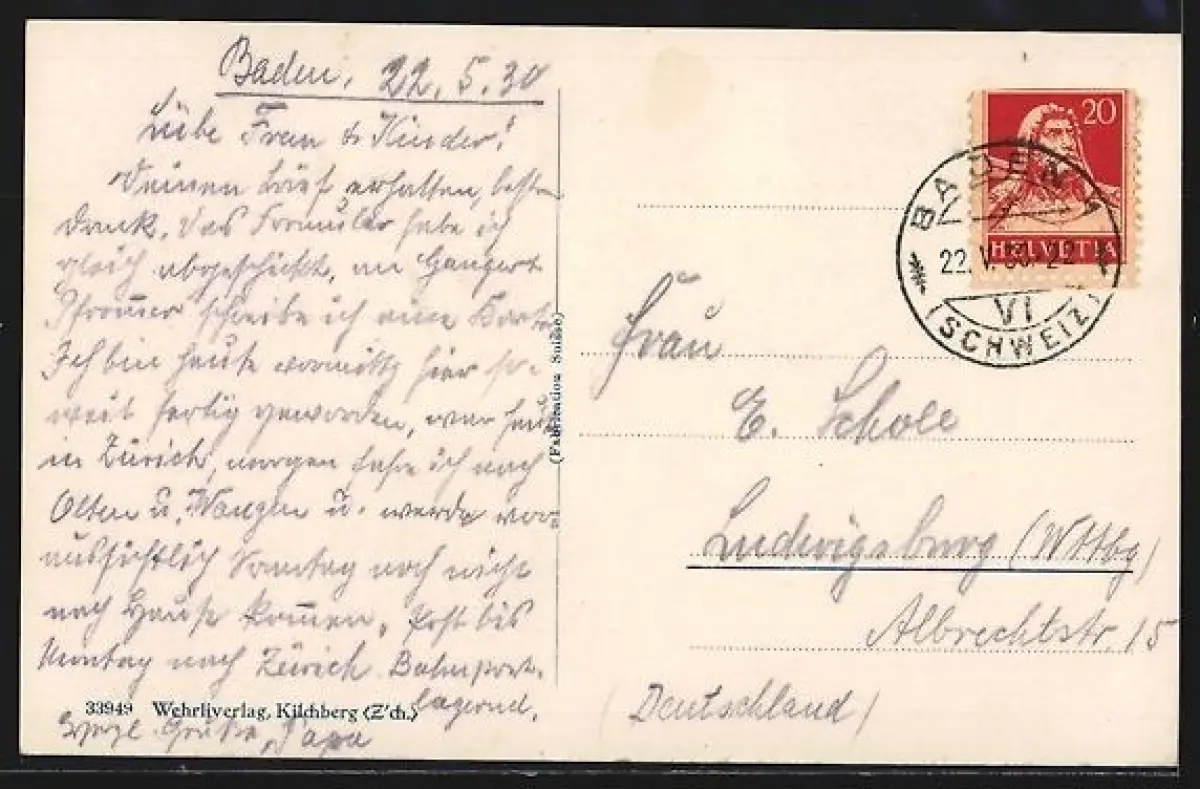 Baden, 22. 5. 30
Liebe Frau & Kinder!
Deinen Brief erhalten, besten
Dank. Das Formular habe ich
gleich abgeschickt, an
Pfrommer schreibe ich eine Karte
Ich bin heute vormittg hier so-
weit fertig geworden, war heute
in Zürich, morgen fahre ich nach
Olten u. Wangen u. werde vor-
aussichtlich Sonntag noch nicht
nach Hause kom̅en. Post bis
Montag nach Zürich Bahnpost-
lagernd.
Herzl. Grüße, Papa
33949 Wehrliverlag, Kilchberg (Z'ch.)
(Fabrikation Suisse)
20
HELVETIA
BADEN 1
22. V. 30. 22
VI
(SCHWEIZ)
Frau
E. Scholl
Ludwigsburg (Wttbg)
Albrechtstr. 15
(Deutschland)